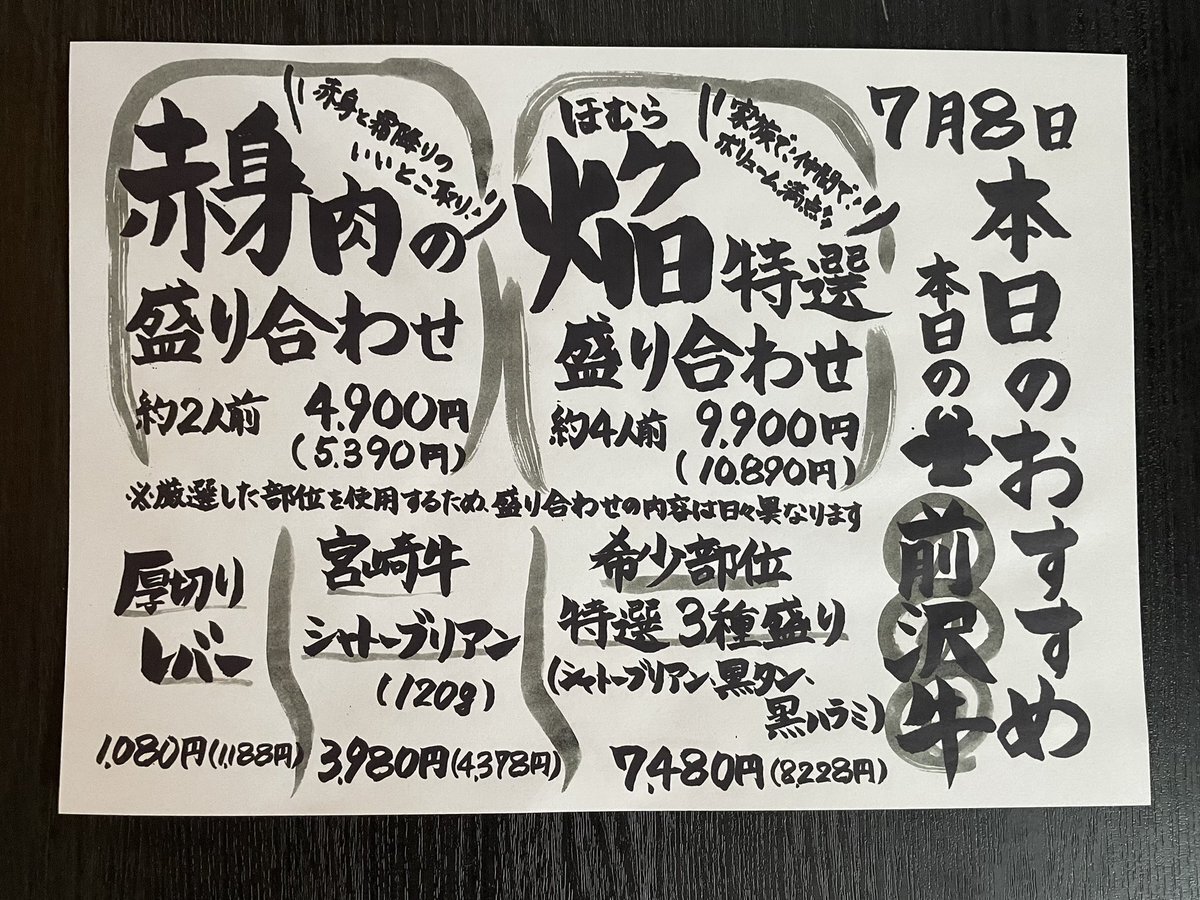 7月8日
本日のおすすめ
本日の
前沢牛
家族で、仲間で、
ボリューム満点!!
ほむら
焔特選
盛り合わせ
約4人前 9,900円
(10,890円)
赤身と霜降りの
いいとこ取り、
赤身肉の
盛り合わせ
約2人前 4,900円
(5,390円)
※厳選した部位を使用するため、盛り合わせの内容は日々異なります
希少部位
特選 3種盛り
(シャトーブリアン、黒タン、
黒ハラミ)
7,480円(8,228円)
宮崎牛
シャトーブリアン
(120g)
3,980円(4,378円)
厚切り
レバー
1,080円(1,188円)